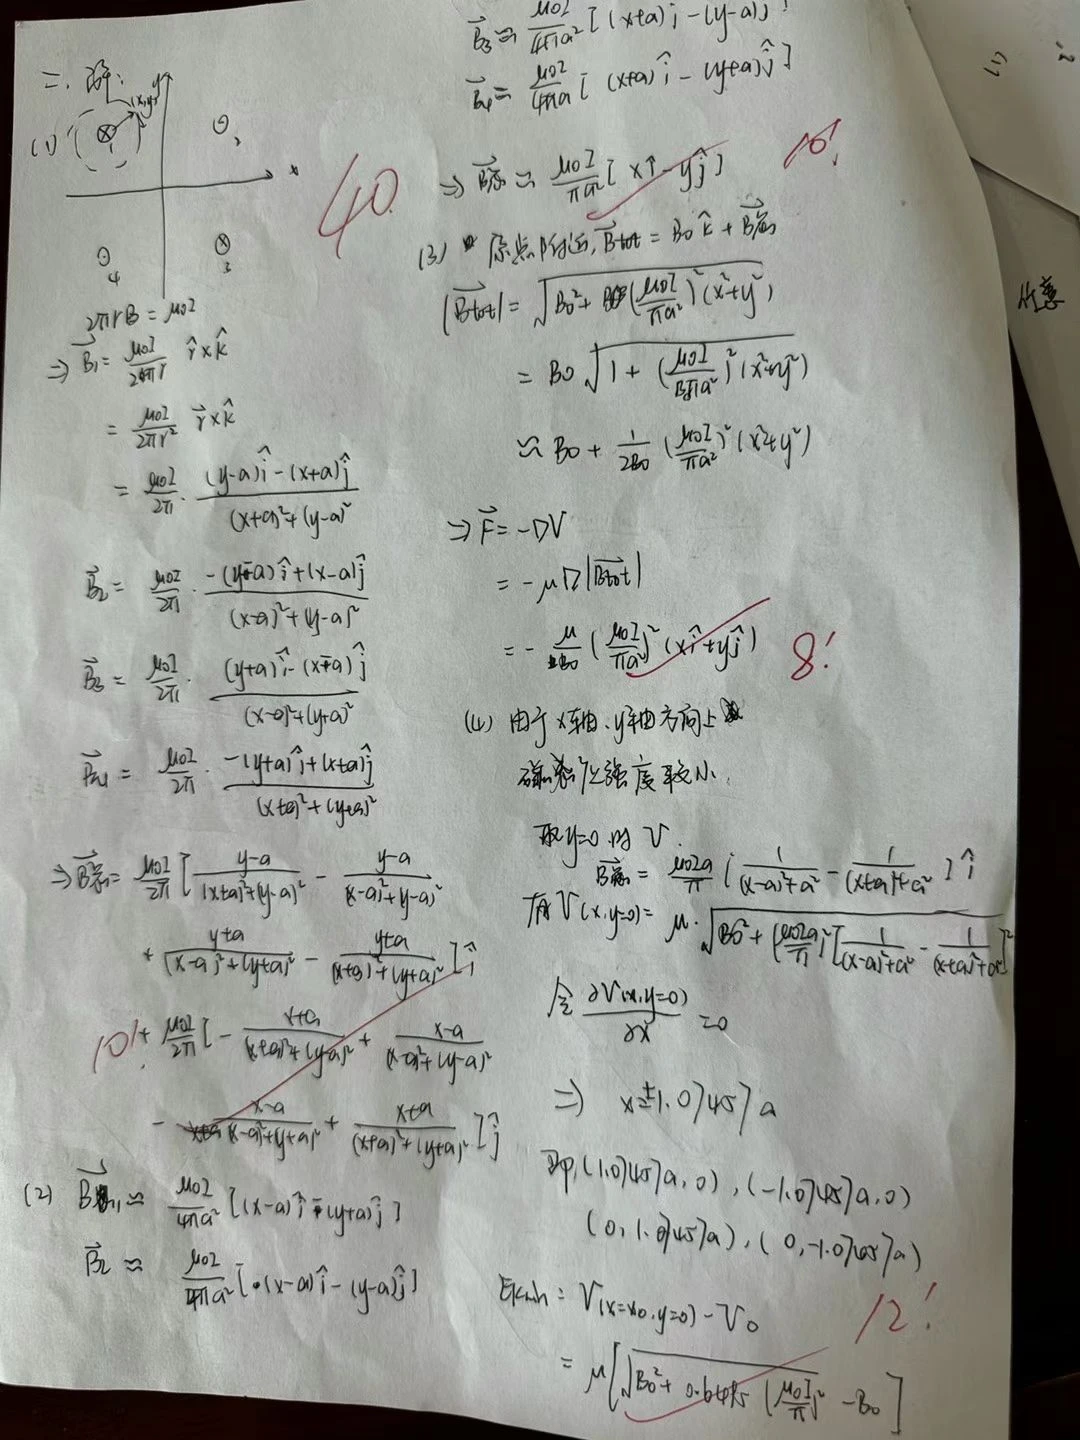 二. 解:
(1)
(x,y)
y
x
1
2
3
4
40.
2πrB = μ0I
⇒ B⃗1 = μ0I/2πr r̂×k̂
= μ0I/2πr² r⃗×k̂
= μ0I/2π · [(y-a)î-(x+a)ĵ]/[(x+a)²+(y-a)²]
B⃗2 = μ0I/2π · [-(y-a)î+(x-a)ĵ]/[(x-a)²+(y-a)²]
B⃗3 = μ0I/2π · [(y+a)î-(x-a)ĵ]/[(x-a)²+(y+a)²]
B⃗4 = μ0I/2π · [-(y+a)î+(x+a)ĵ]/[(x+a)²+(y+a)²]
⇒ B⃗总 = μ0I/2π [ (y-a)/[(x+a)²+(y-a)²] - (y-a)/[(x-a)²+(y-a)²]
+ (y+a)/[(x-a)²+(y+a)²] - (y+a)/[(x+a)²+(y+a)²] ]î
10! + μ0I/2π [ - (x+a)/[(x+a)²+(y-a)²] + (x-a)/[(x-a)²+(y-a)²]
- (x-a)/[(x-a)²+(y+a)²] + (x+a)/[(x+a)²+(y+a)²] ]ĵ
(2) B⃗1 ≈ μ0I/4πa² [(x-a)î-(y+a)ĵ]
B⃗2 ≈ μ0I/4πa² [(x-a)î-(y-a)ĵ]
B⃗3 ≈ μ0I/4πa² [(x+a)î-(y-a)ĵ]
B⃗4 ≈ μ0I/4πa [(x+a)î-(y+a)ĵ]
⇒ B⃗总 ≈ μ0I/πa² [xî-yĵ] 10!
(3) 原点附近, B⃗tot = B0k̂ + B⃗总
|B⃗tot| = √(B0²+(μ0I/πa²)²(x²+y²))
= B0√(1+(μ0I/B0πa²)²(x²+y²))
≈ B0 + 1/2B0 (μ0I/πa²)²(x²+y²)
⇒ F⃗ = -∇V
= -μ∇|B⃗tot|
= - μ/B0 (μ0I/πa²)²(xî+yĵ) 8!
(4) 由于x轴、y轴方向上
磁感应强度较小,
取y=0的V.
B⃗总 = μ0Ia/π [1/[(x-a)²+a²] - 1/[(x+a)²+a²]]î
有V(x,y=0) = μ·√(B0²+(μ0Ia/π)²[1/[(x-a)²+a²] - 1/[(x+a)²+a²]]²)
令 ∂V(x,y=0)/∂x = 0
⇒ x=±1.07457a
即,(1.07457a,0),(-1.07457a,0)
(0,1.07457a),(0,-1.07457a)
Ekmin = V(x=x0,y=0) - V0 12!
= μ[√(B0²+0.6495(μ0I/πa)²) - B0]
任意